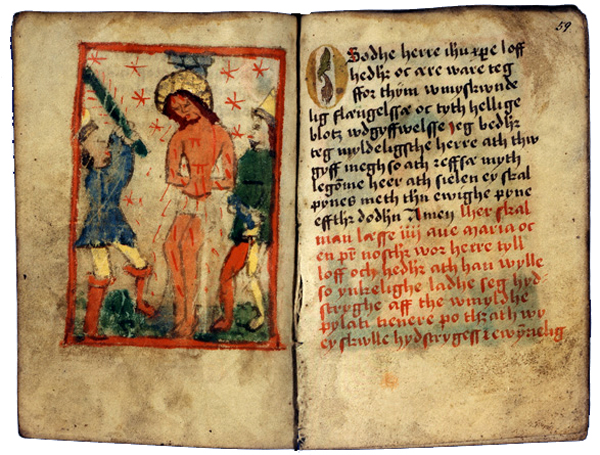 59
O Sødhe herre ihu xpe loff
hedher oc ære ware teg
ffor thijn vmyskwnde
lig flængelssæ oc tyth hellige
blotz vdgyffwelsse Jeg bedher
teg myldeligsthe herre ath thw
gyff megh so ath reffsæ myth
legome heer ath sielen ey skal
pynes meth thn ewighe pyne
effthr dødhn Amen Her skal
man læsse iiij aue maria oc
en pr nosthr wor herre tyll
loff och hedhr ath han wylle
so ynkelighe ladhe seg hyd
stryghe aff the vmyldhe
pylati tienere po thr ath wy
ey skwlle hydstryges i ewynnelig